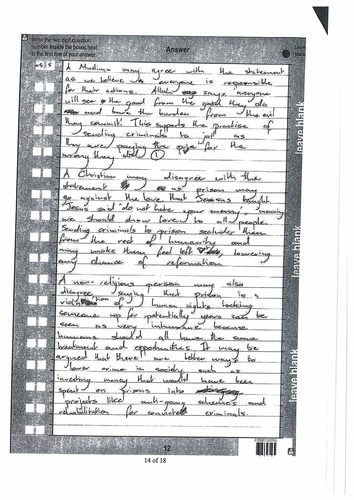 Write the two digit question
number inside the boxes next
to the first line of your answer
Answer
05 5 A Muslim may agree with the statement
as we believe everyone is responsible
for their actions. Allah says everyone
will see the good from the good they do
and have the burden from the evil
they commit. This supports the practise of
sending criminals to jail as
they are paying the price for the
wrong they did 1
A Christian may disagree with the
statement as prison may
go against the love that
Jesus and do not hate your enemy meaning
we should show love to all people.
Sending criminals to prison them
from the rest of humanity and
may make them feel left lowering
any chance of reformation
A non-religious person may also
disagree saying that prison is a
violation of human rights. Locking
someone up for potentially years can be
seen as very inhumane because
humans should all have the same
treatment and opportunities. It may be
argued that there are better ways to
lower crime in society such as
investing money that would have been
spent on prisons into
projects like anti-gang schemes and
rehabilitation for convicted criminals.
leave blank
leave blank
leave blank
leave blank
12
14 of 18